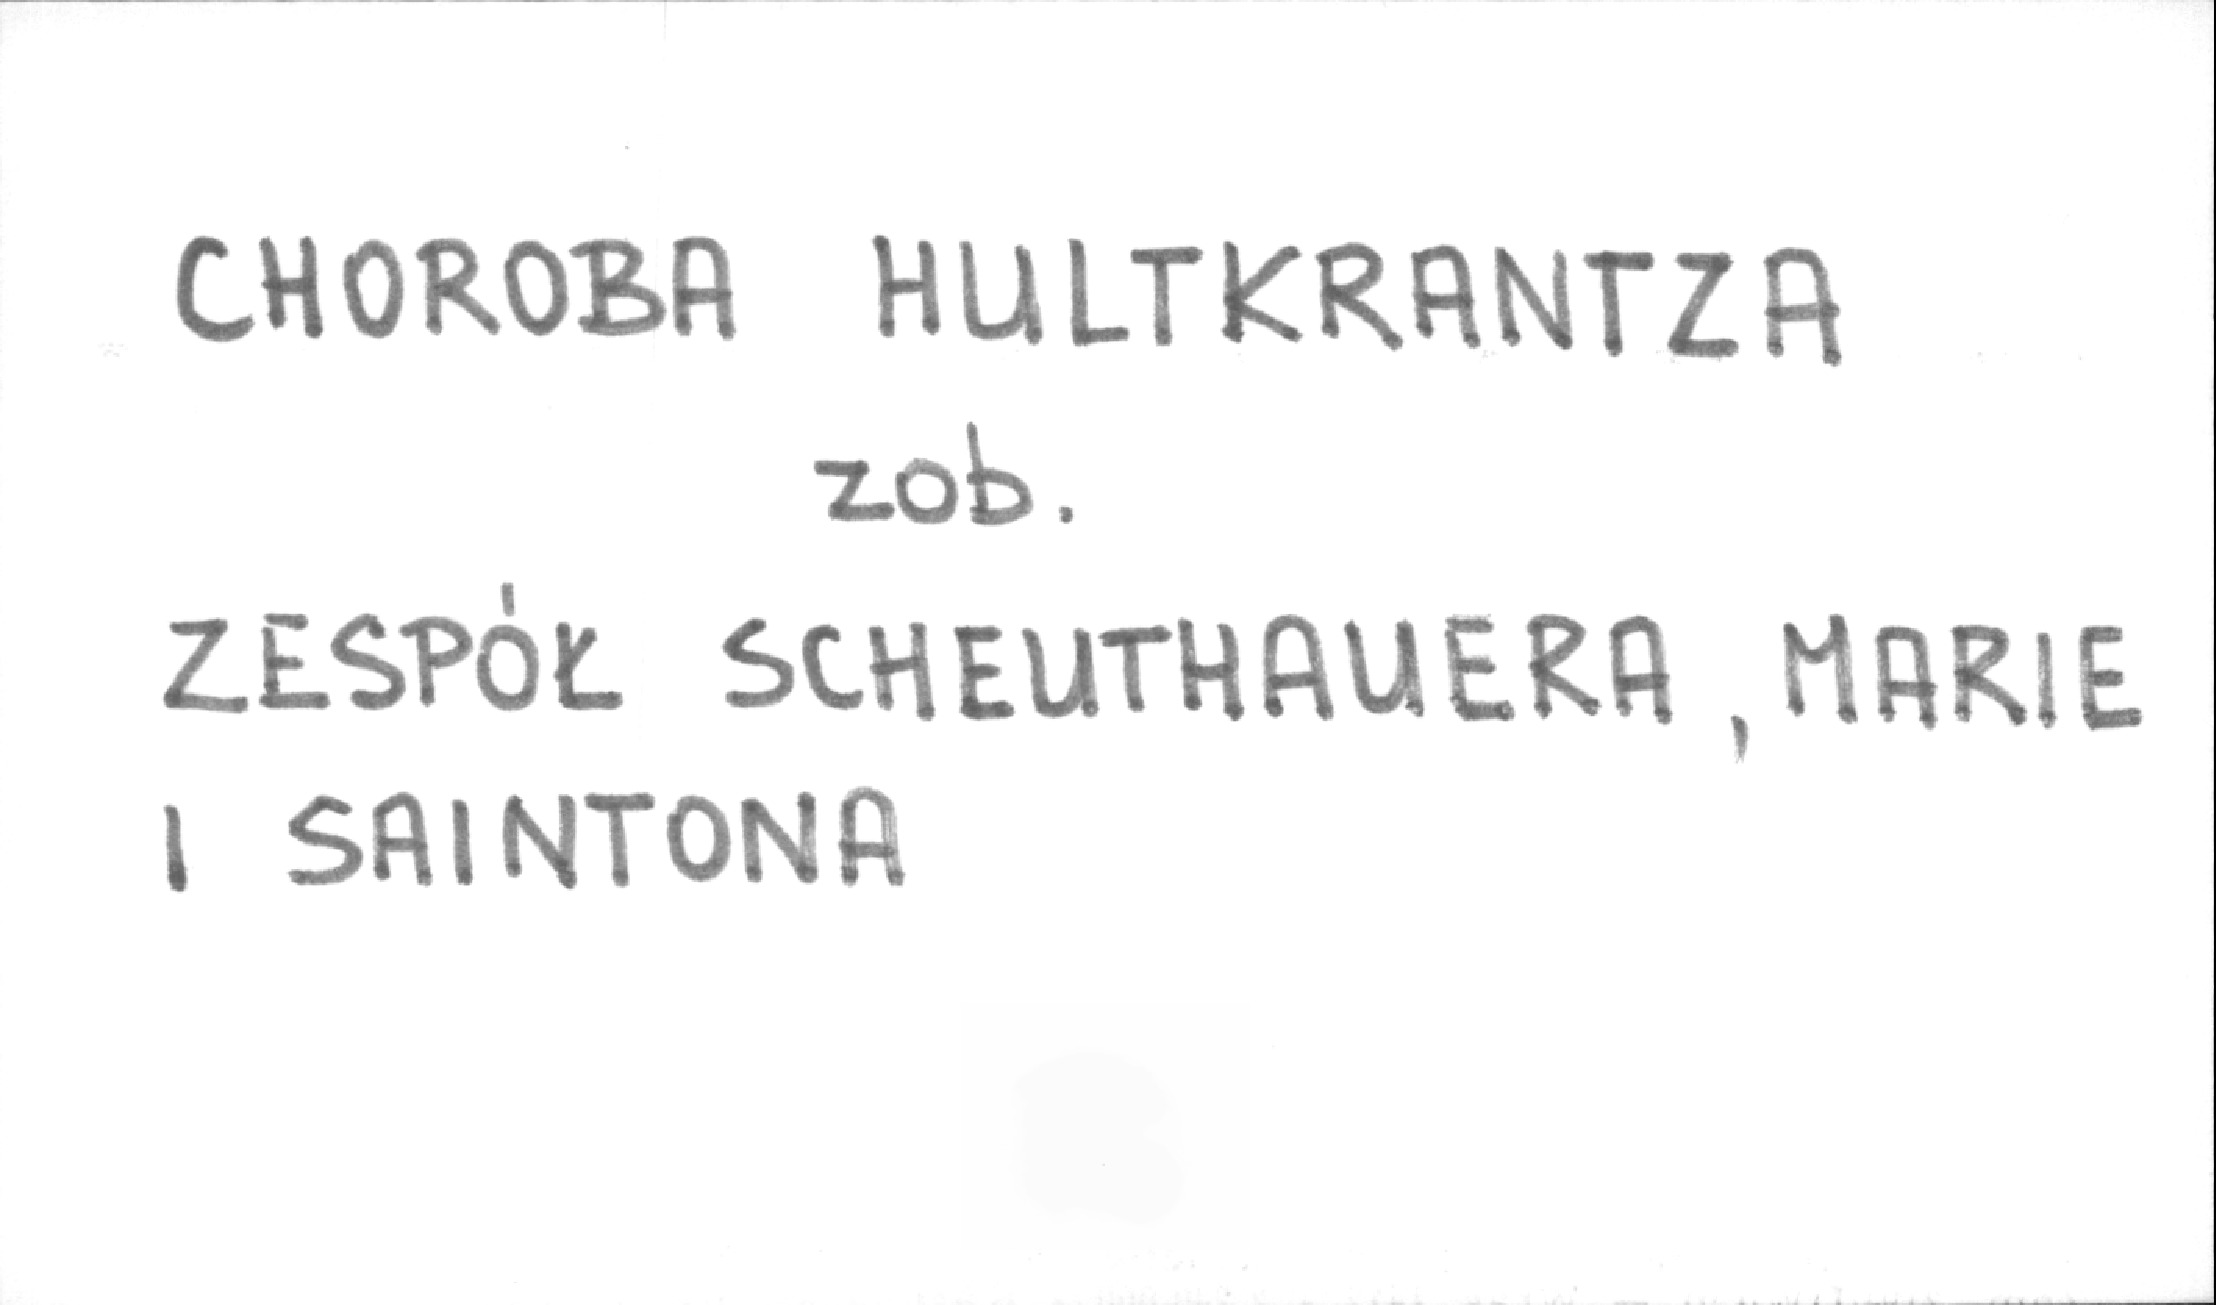 CHOROBA HULTKRANTZA
zob.
ZESPÓŁ SCHEUTHAUERA, MARIE
I SAINTONA